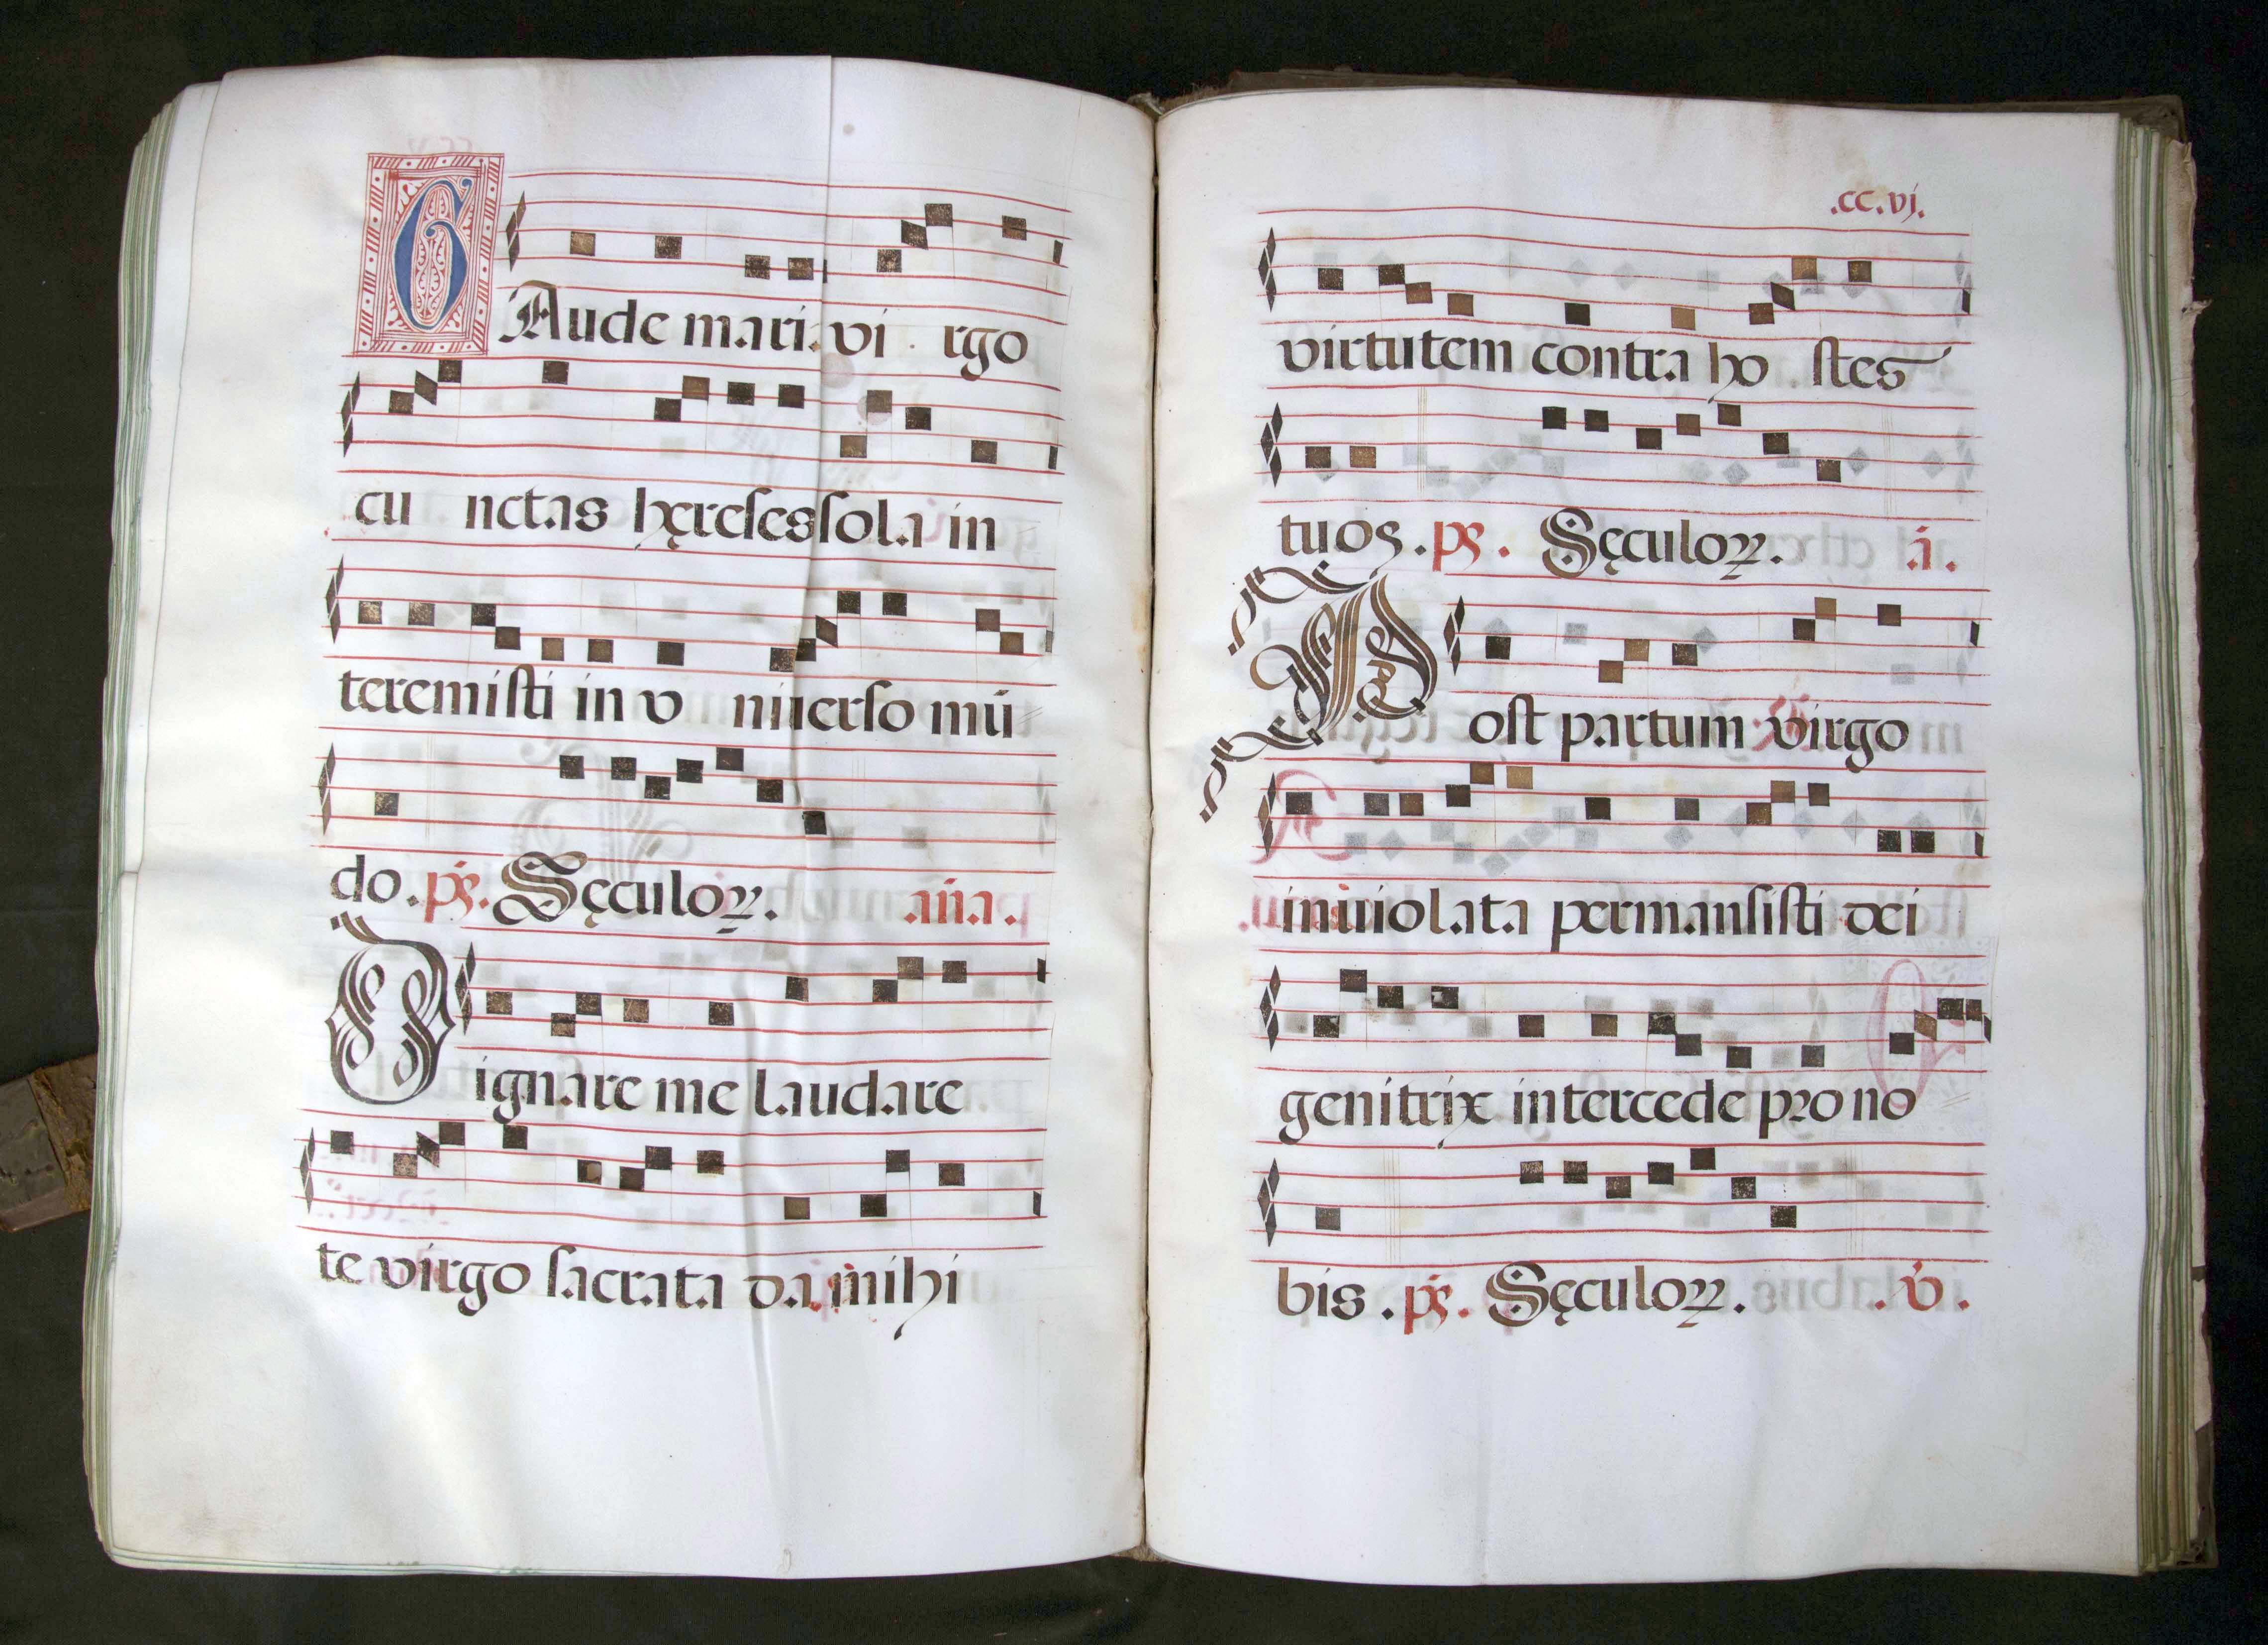 GAude maria vi rgo
cu nctas hęreses sola in
teremisti in v niuerso mū
do. ps. Sęculoꝝ. aña.
Dignare me laudare
te virgo sacrata da mihi
.cc.vj.
virtutem contra ho stes
tuos. ps. Sęculoꝝ. ā.
Post partum virgo
inuiolata permansisti dei
genitrix intercede pro no
bis. ps. Sęculoꝝ. .v.